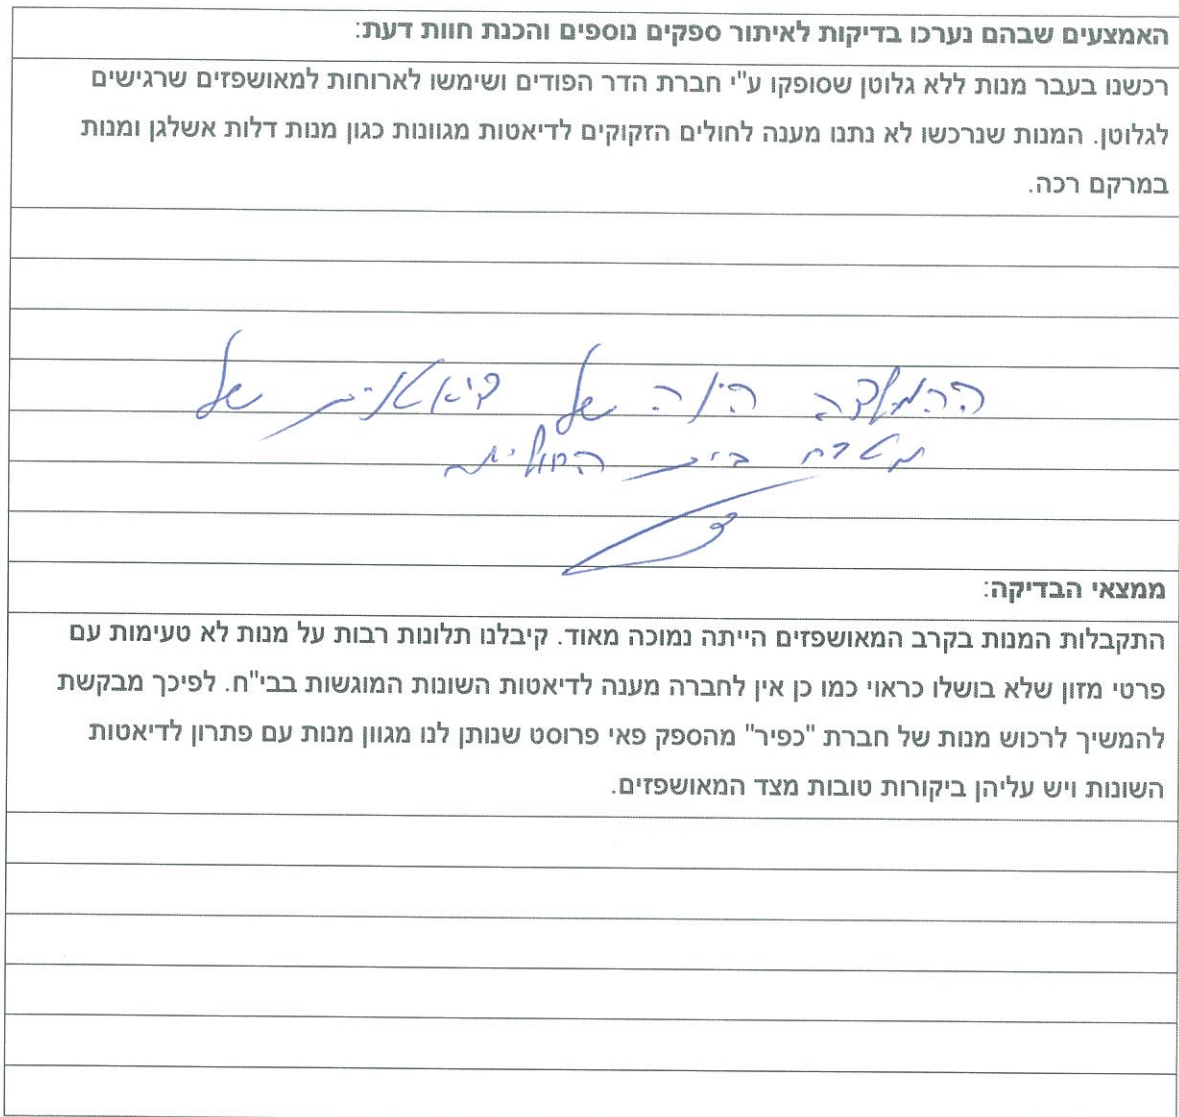 האמצעים שבהם נערכו בדיקות לאיתור ספקים נוספים והכנת חוות דעת:
רכשנו בעבר מנות ללא גלוטן שסופקו ע"י חברת הדר הפודים ושימשו לארוחות למאושפזים שרגישים
לגלוטן. המנות שנרכשו לא נתנו מענה לחולים הזקוקים לדיאטות מגוונות כגון מנות דלות אשלגן ומנות
במרקם רכה.
ההמלצה הינה של דיאטנית של
מטבח בית החולים
ממצאי הבדיקה:
התקבלות המנות בקרב המאושפזים הייתה נמוכה מאוד. קיבלנו תלונות רבות על מנות לא טעימות עם
פרטי מזון שלא בושלו כראוי כמו כן אין לחברה מענה לדיאטות השונות המוגשות בבי"ח. לפיכך מבקשת
להמשיך לרכוש מנות של חברת "כפיר" מהספק פאי פרוסט שנותן לנו מגוון מנות עם פתרון לדיאטות
השונות ויש עליהן ביקורות טובות מצד המאושפזים.